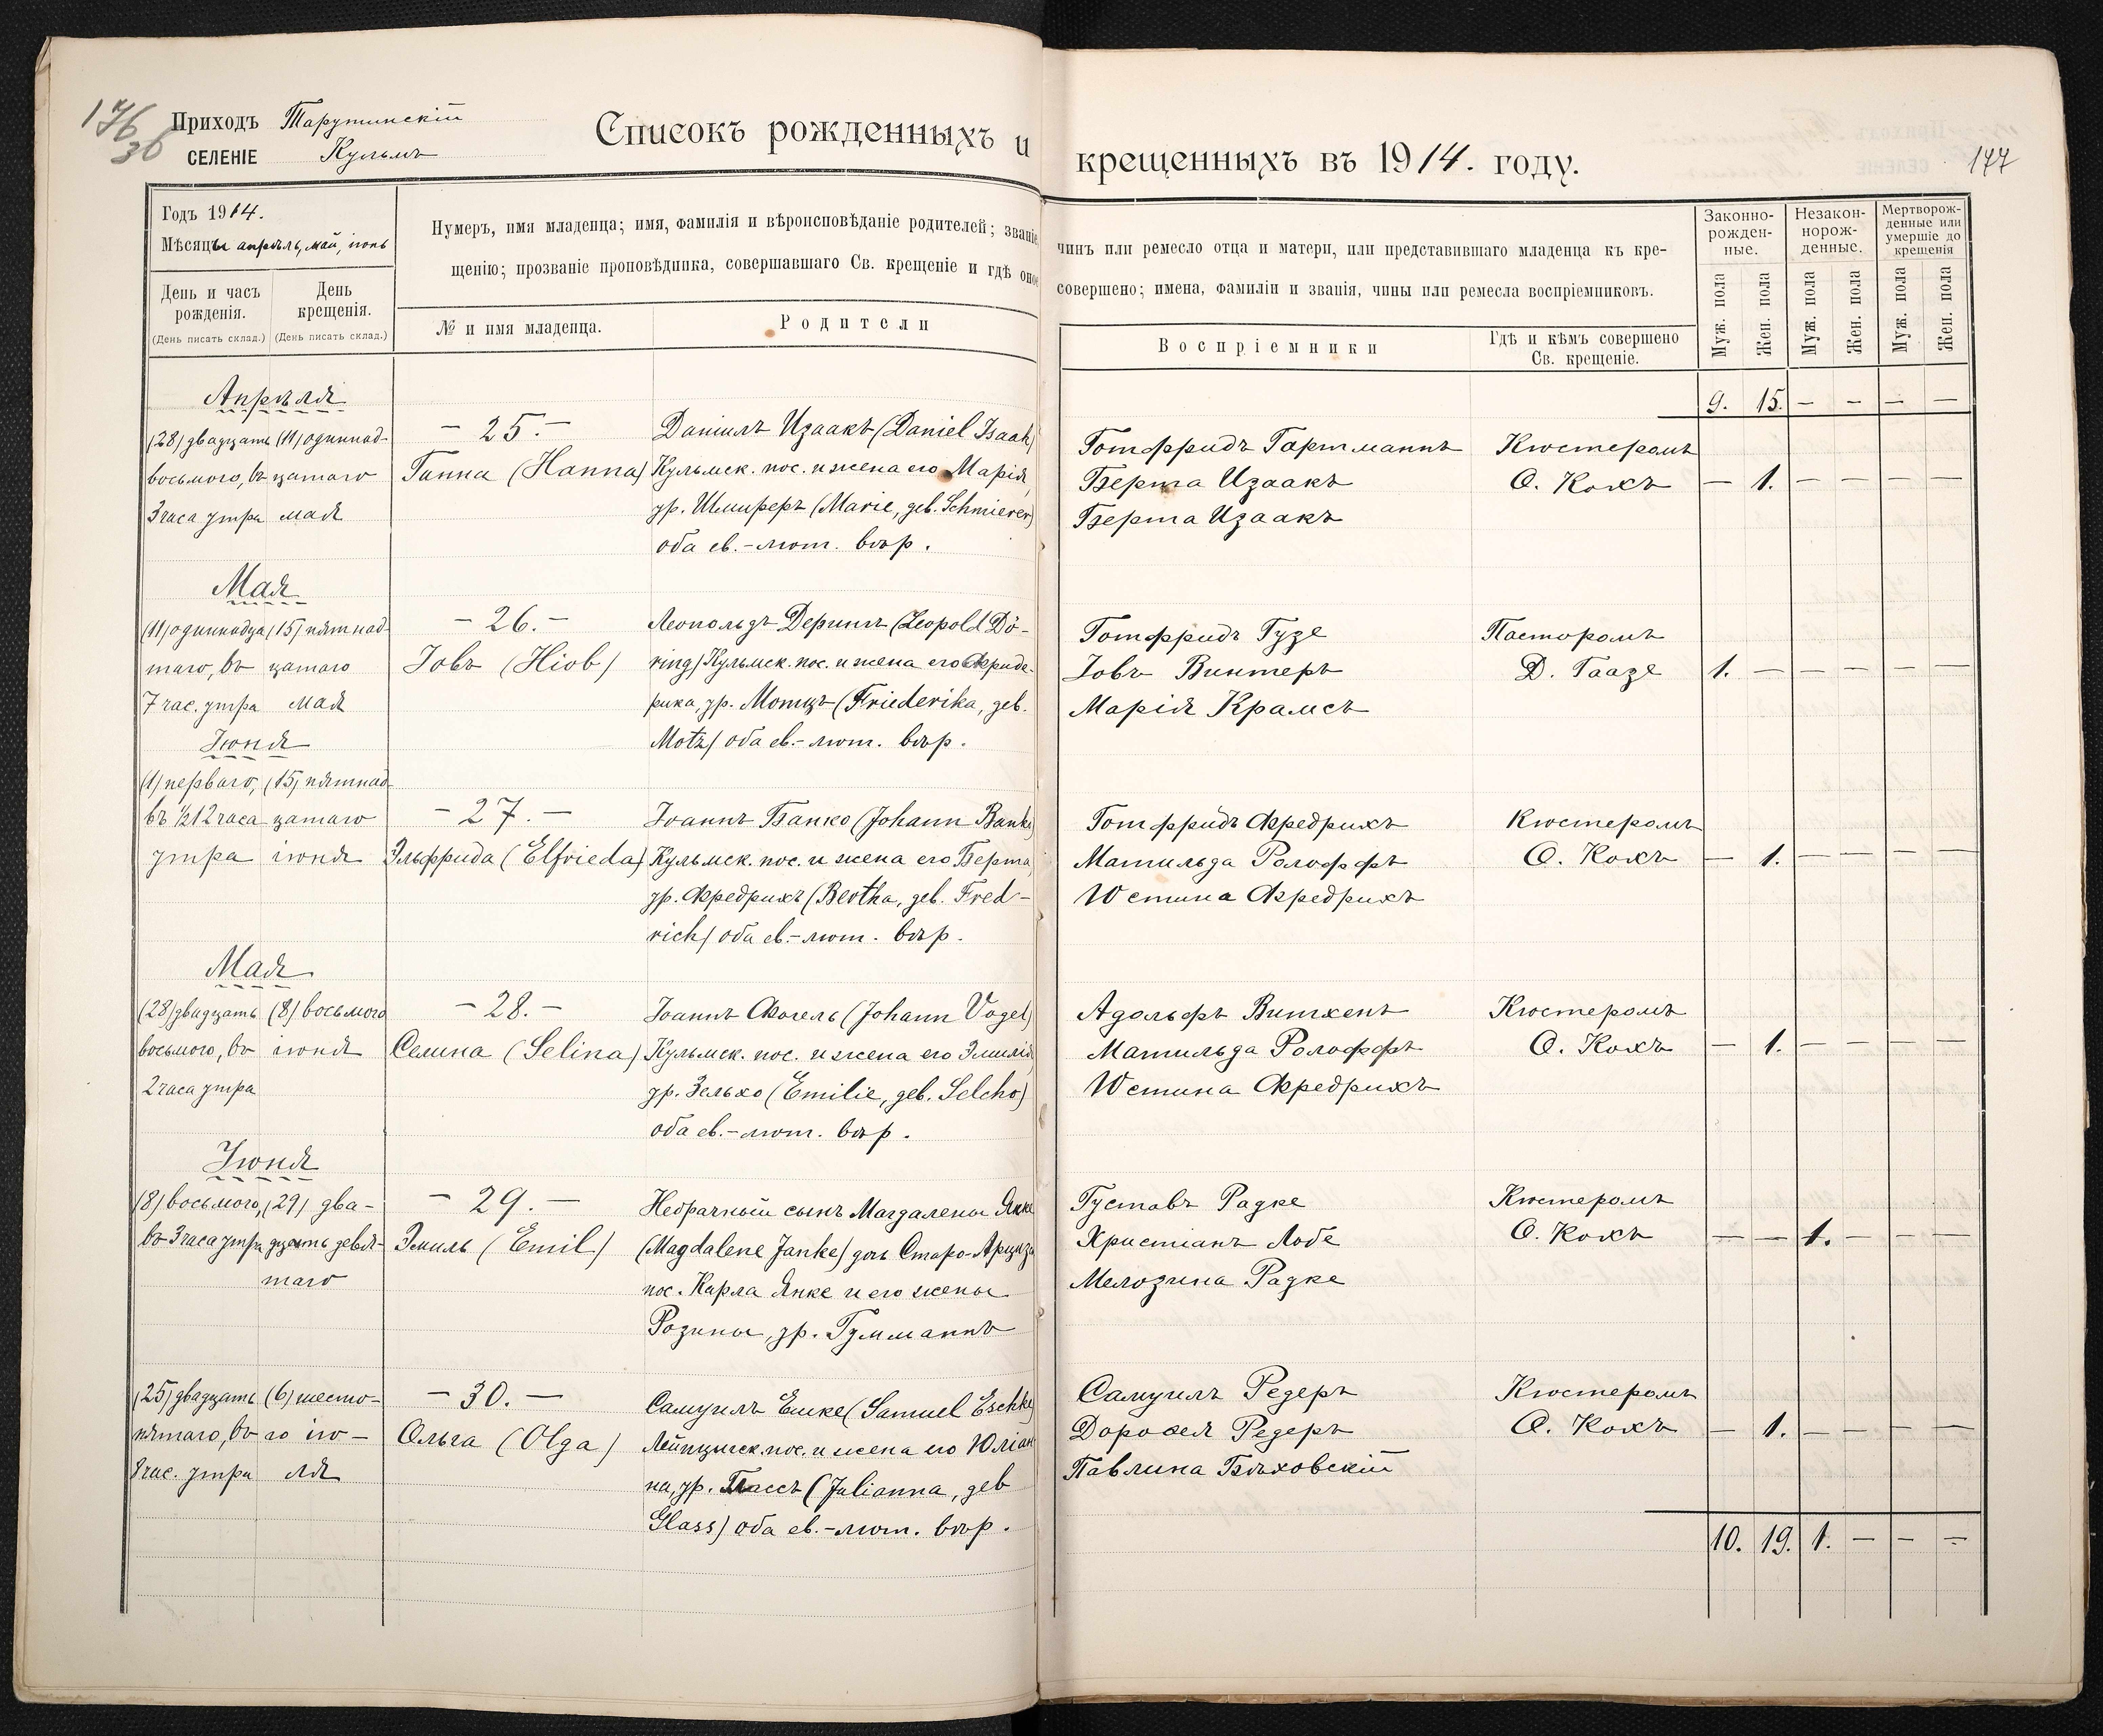 176
36
Приходъ Тарутинскій
СЕЛЕНІЕ Кульмъ
Списокъ рожденныхъ и крещенныхъ въ 1914. году.
177
Годъ 1914.
Мѣсяцы апрѣль, май, іюнь
День и часъ рожденія.
(День писать склад.)
День крещенія.
(День писать склад.)
Нумеръ, имя младенца; имя, фамилія и вѣроисповѣданіе родителей; званіе, чинъ или ремесло отца и матери, или представившаго младенца къ кре-
щенію; прозваніе проповѣдника, совершавшаго Св. крещеніе и гдѣ оное совершено; имена, фамиліи и званія, чины или ремесла воспріемниковъ.
№ и имя младенца.
Родители
Воспріемники
Гдѣ и кѣмъ совершено Св. крещеніе.
Законно-рожден-ные.
Незакон-норож-денные.
Мертворож-денные или умершіе до крещенія
Муж. пола Жен. пола Муж. пола Жен. пола Муж. пола Жен. пола
9. 15. — — — —
Апрѣля
(28) двадцать
восьмого, въ
3 часа утра
(11) одиннад-
цатаго
мая
— 25. —
Ганна (Hanna)
Даніилъ Изаакъ (Daniel Isaak)
Кульмск. пос. и жена его Марія,
ур. Шмиреръ (Marie, geb. Schmierer)
оба ев.-лют. вѣр.
Готфридъ Гартманнъ
Берта Изаакъ
Берта Изаакъ
Кюстеромъ
О. Кохъ
— 1. — — — —
Мая
(11) одиннадца
таго, въ
7 час. утра
(15) пятнад-
цатаго
мая
— 26. —
Іовъ (Hiob)
Леопольдъ Дерингъ (Leopold Dö-
ring) Кульмск. пос. и жена его Фриде-
рика, ур. Мотцъ (Friederika, geb.
Motz) оба ев.-лют. вѣр.
Готфридъ Гузе
Іовъ Винтеръ
Марія Крамсъ
Пасторомъ
Д. Гаазе
1. — — — — —
Іюня
(1) перваго,
въ ½12 часа
утра
(15) пятнад-
цатаго
іюня
— 27. —
Эльфрида (Elfrieda)
Іоаннъ Банко (Johann Banko)
Кульмск. пос. и жена его Берта,
ур. Фредрихъ (Bertha, geb. Fred-
rich) оба ев.-лют. вѣр.
Готфридъ Фредрихъ
Матильда Ролоффъ
Юстина Фредрихъ
Кюстеромъ
О. Кохъ
— 1. — — — —
Мая
(28) двадцать
восьмого, въ
2 часа утра
(8) восьмого
іюня
— 28. —
Селина (Selina)
Іоаннъ Фогель (Johann Vogel)
Кульмск. пос. и жена его Эмилія
ур. Зельхо (Emilie, geb. Selcho)
оба ев.-лют. вѣр.
Адольфъ Витхенъ
Матильда Ролоффъ
Юстина Фредрихъ
Кюстеромъ
О. Кохъ
— 1. — — — —
Іюня
(8) восьмого,
въ 3 часа утра
(29) два-
дцать девя-
таго
— 29. —
Эмиль (Emil)
Небрачный сынъ Магдалены Янке
(Magdalene Janke) дочь Старо-Арцизск
пос. Карла Янке и его жены
Розины, ур. Гумманнъ
Густавъ Радке
Христіанъ Лобе
Мелозина Радке
Кюстеромъ
О. Кохъ
— — 1. — — —
(25) двадцать
пятаго, въ
8 час. утра
(6) шесто-
го ію-
ля
— 30. —
Ольга (Olga)
Самуилъ Ешке (Samuel Eschke)
Лейпцигск. пос. и жена его Юліан
на, ур. Глассъ (Julianna, geb
Glass) оба ев.-лют. вѣр.
Самуилъ Редеръ
Доροѳея Редеръ
Павлина Бѣховскій
Кюстеромъ
О. Кохъ
— 1. — — — —
10. 19. 1. — — —